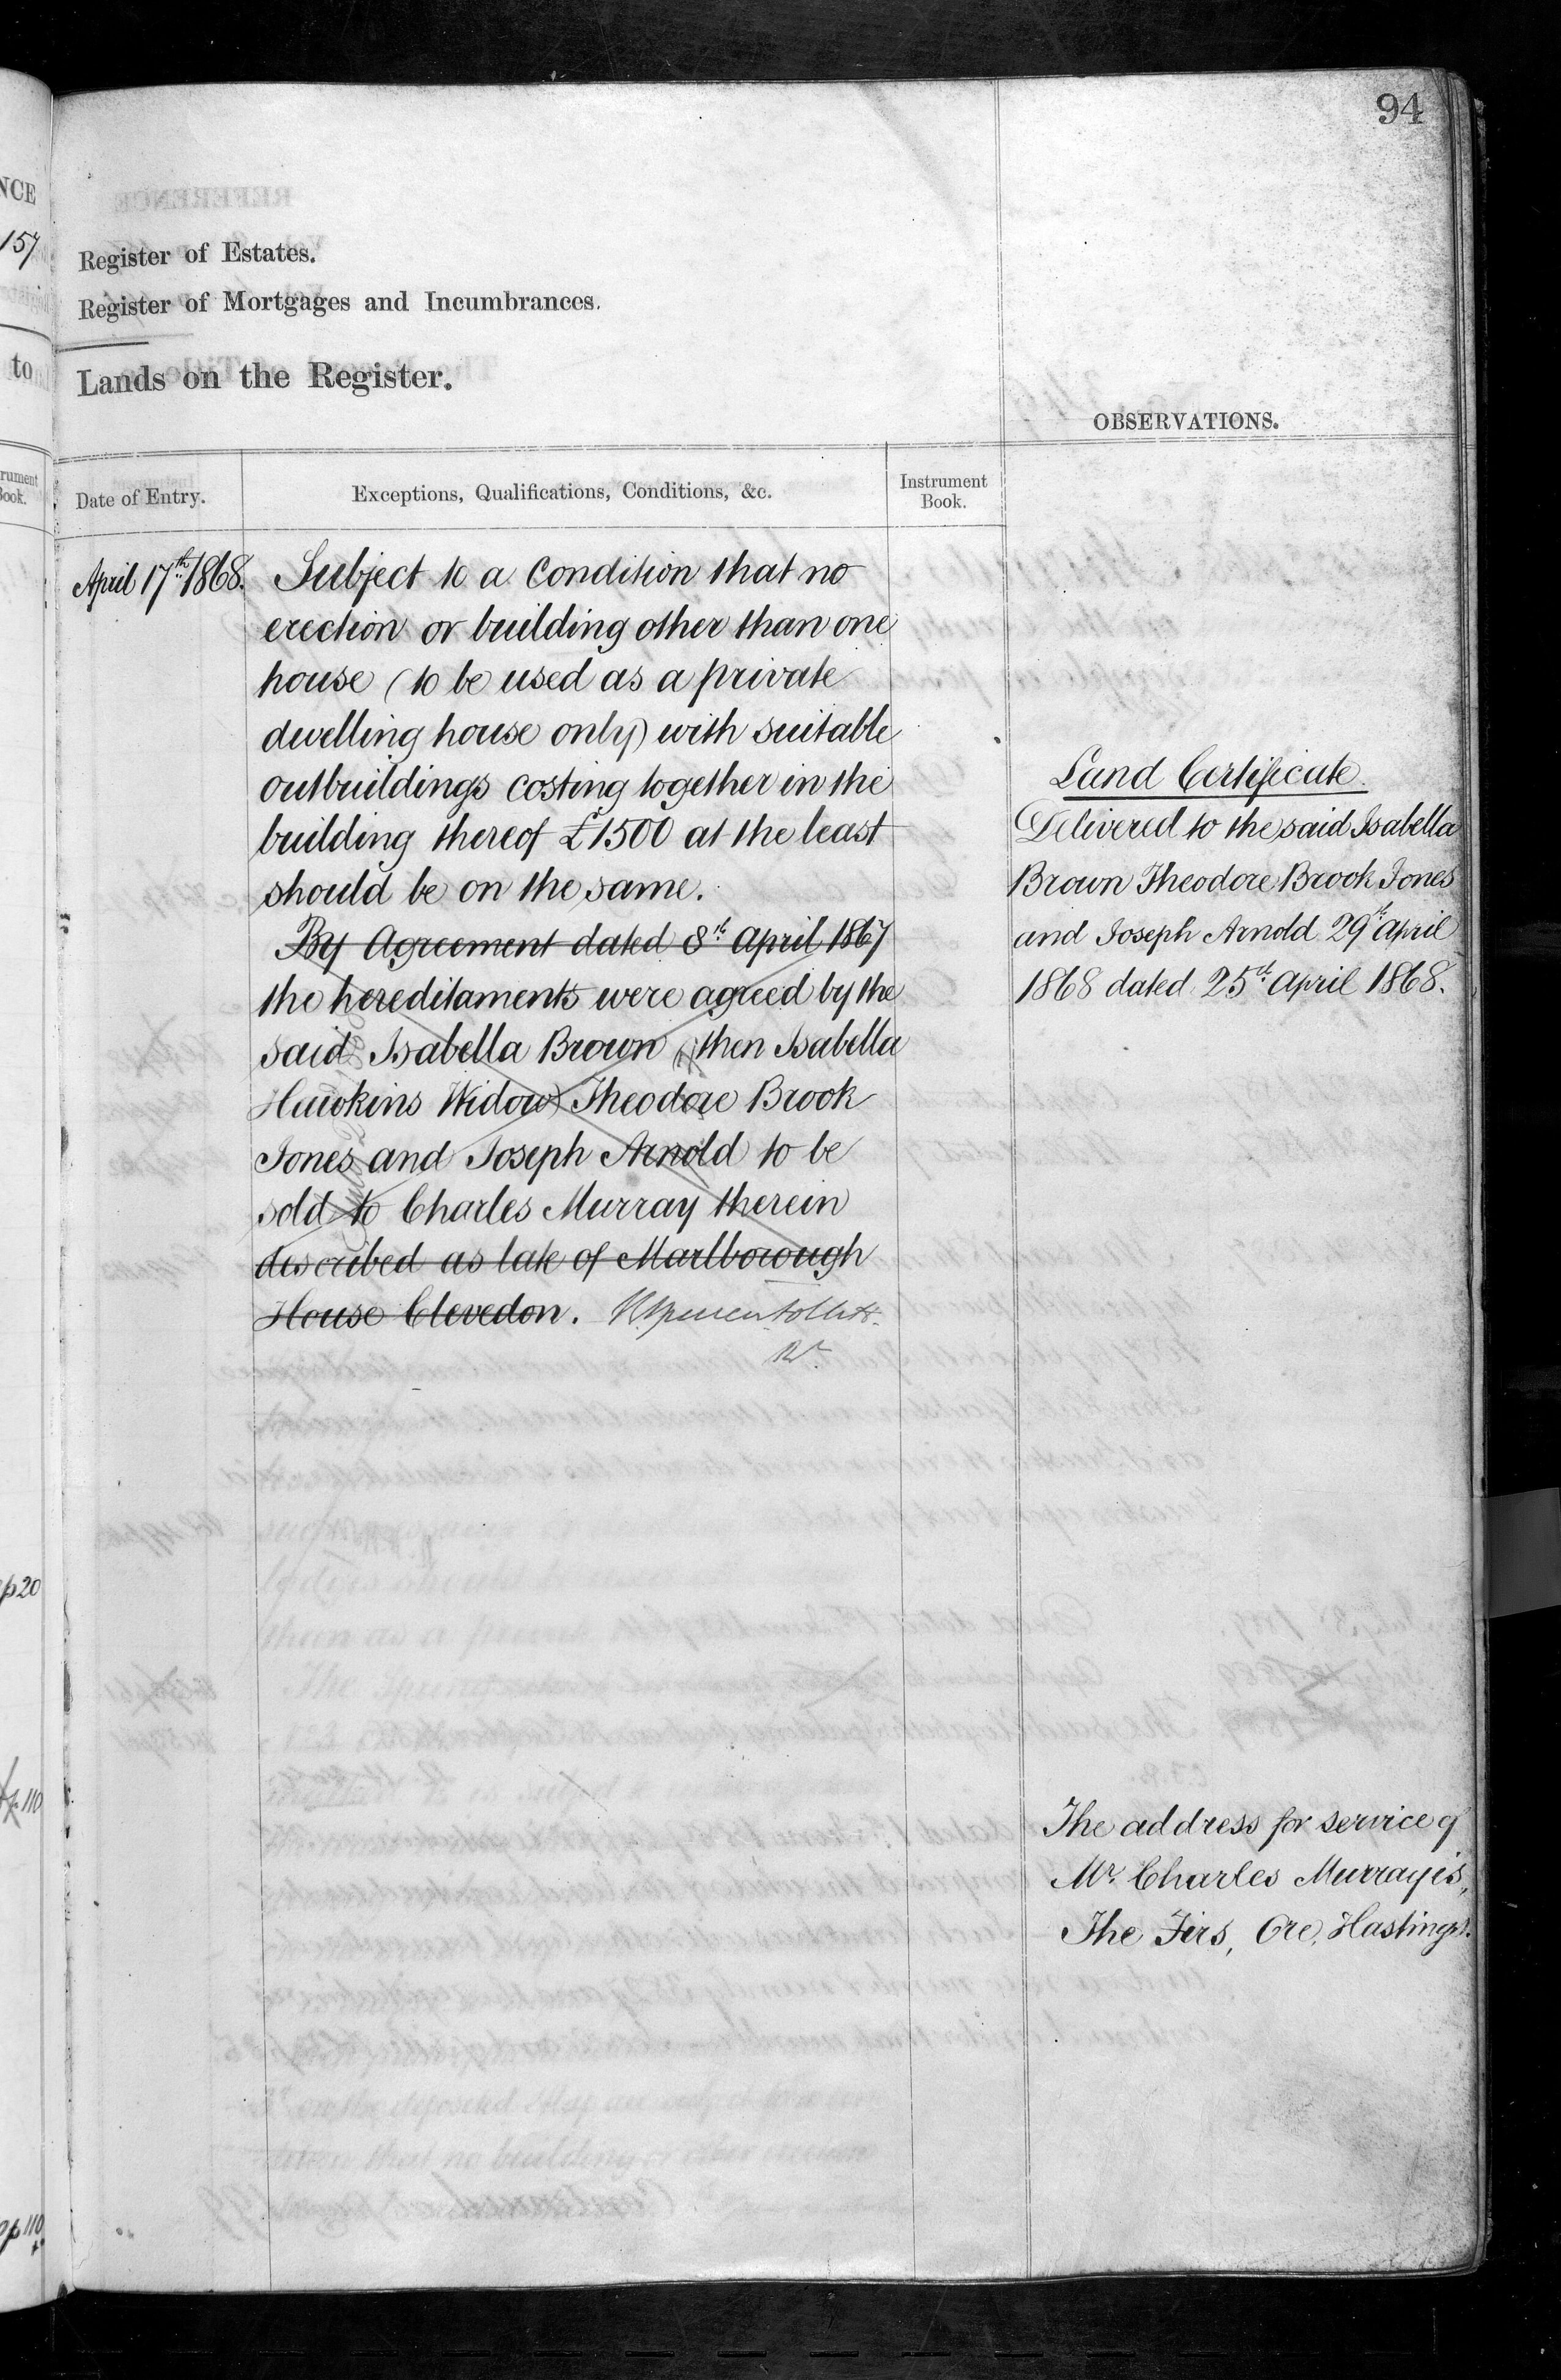 94
Register of Estates.
Register of Mortgages and Incumbrances.
Lands on the Register.
OBSERVATIONS.
Date of Entry.
Exceptions, Qualifications, Conditions, &c.
Instrument
Book.
April 17th 1868.
Subject to a Condition that no
erection or building other than one
house (to be used as a private
dwelling house only) with suitable
outbuildings costing together in the
building thereof £1500 at the least
should be on the same.
By Agreement dated 8th April 1867
the hereditaments were agreed by the
said Isabella Brown (then Isabella
Hawkins Widow) Theodore Brook
Jones and Joseph Arnold to be
sold to Charles Murray therein
described as late of Marlborough
House Clevedon.
Land Certificate.
Delivered to the said Isabella
Brown Theodore Brook Jones
and Joseph Arnold 29th April
1868 dated 25th April 1868.
The address for service of
Mr. Charles Murray is,
The Firs, Ore, Hastings.
NCE
157
to
Book.
p20
110
p110